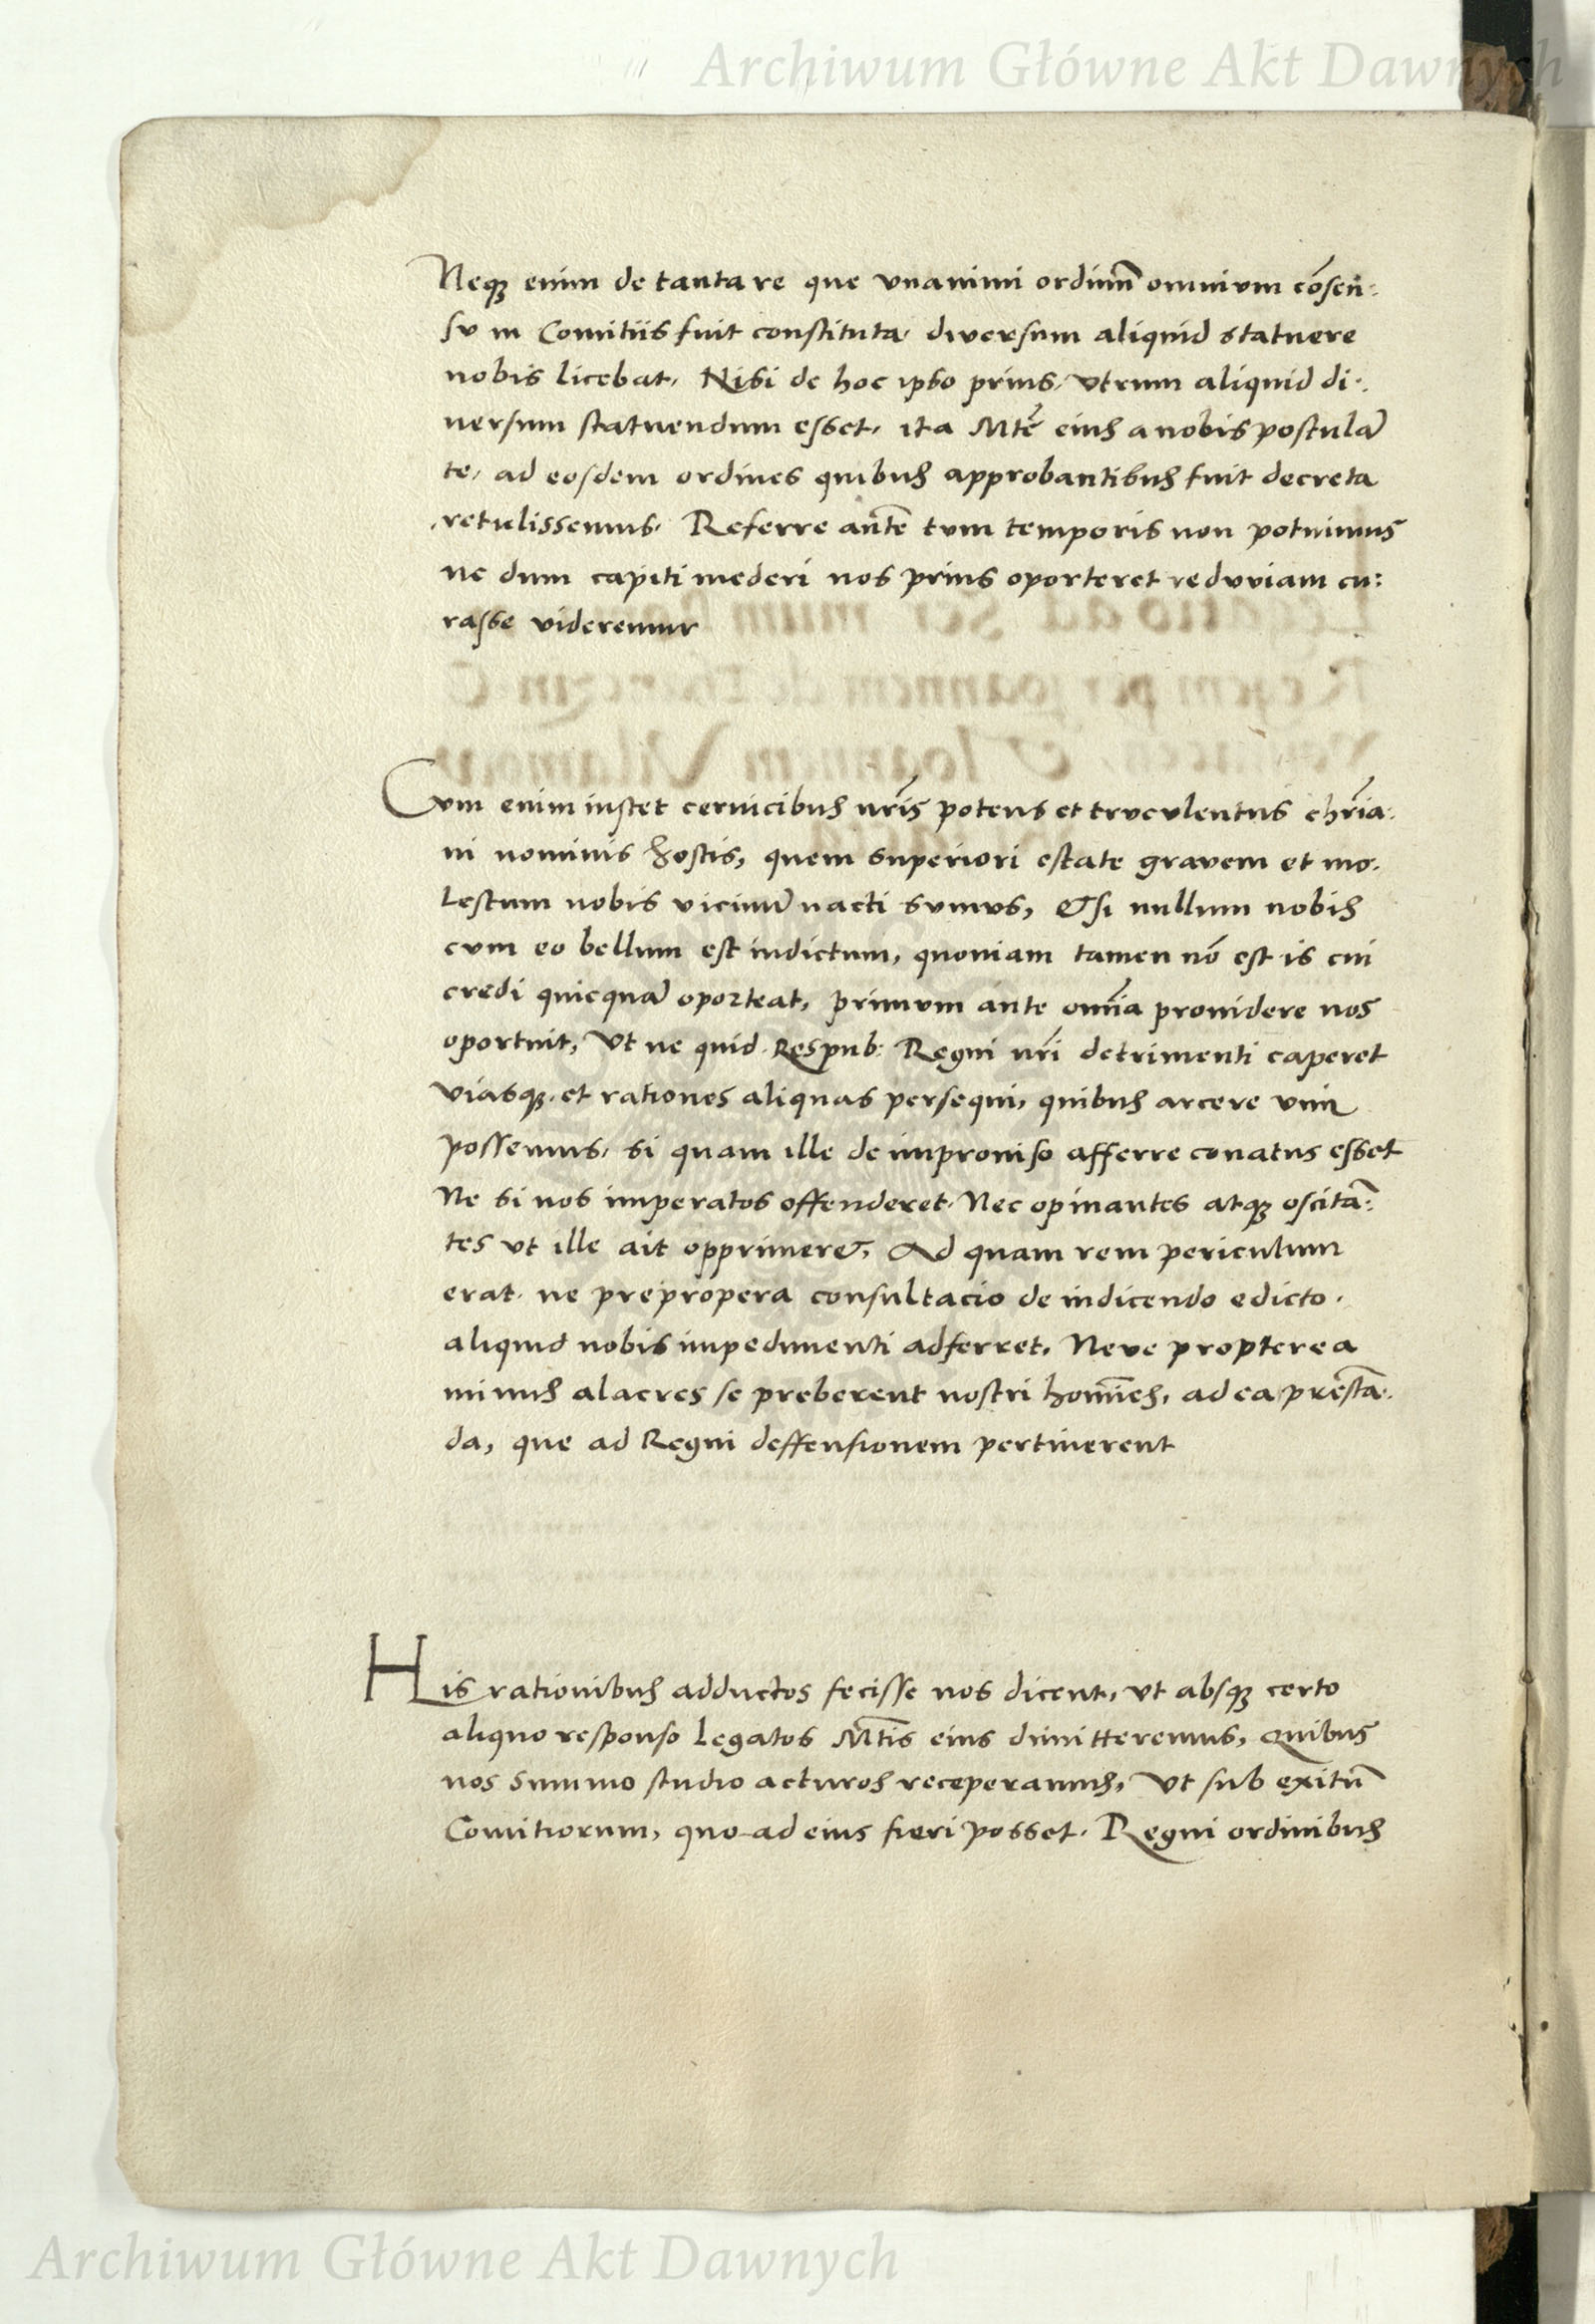 Archiwum Główne Akt Dawnych
Neqꝫ enim de tanta re que vnanimi ordinū omnivm cōsen:
sv in Comitiis fuit constituta, diversum aliquid statuere
nobis licebat, Nisi de hoc ipso prius, vtrum aliquid di:
uersum statuendum esset, ita Mtē eius a nobis postulā
te, ad eosdem ordines quibus approbantibus fuit decreta
retulissemus, Referre aūte tvm temporis non potuimus
ne dum capiti mederi nos prius oporteret reduviam cu:
rasse videremur
Cvm enim instet ceruicibus nr̄is potens et trvcvlentus chr̄ia:
ni nominis hostis, quem superiori estate gravem et mo:
lestum nobis vicinū nacti svmvs, & si nullum nobis
cvm eo bellum est indictum, quoniam tamen nō est is cui
credi quicquā oporteat, primvm ante oīa prouidere nos
oportuit, Vt ne quid Respub: Regni nr̄i detrimenti caperet
viasqꝫ et rationes aliquas persequi, quibus arcere vim
possemus, si quam ille de improuiso afferre conatus esset
Ne si nos imperatos offenderet, Nec opinantes atqꝫ oscitā:
tes vt ille ait opprimer&, Ad quam rem periculum
erat, ne prepropera consultacio de indicendo edicto,
aliquid nobis impedimenti adferret, Neve propterea
minus alacres se preberent nostri hoīes, ad ea prestā:
da, que ad Regni deffensionem pertinerent
His rationibus adductos fecisse nos dicent, vt absqꝫ certo
aliquo responso Legatos Mtīs eius dimitteremus, Quibus
nos Summo studio acturos receperamus, Vt sub exitū
Comitiorum, quo ad eius fieri posset, Regni ordinibus
Archiwum Główne Akt Dawnych